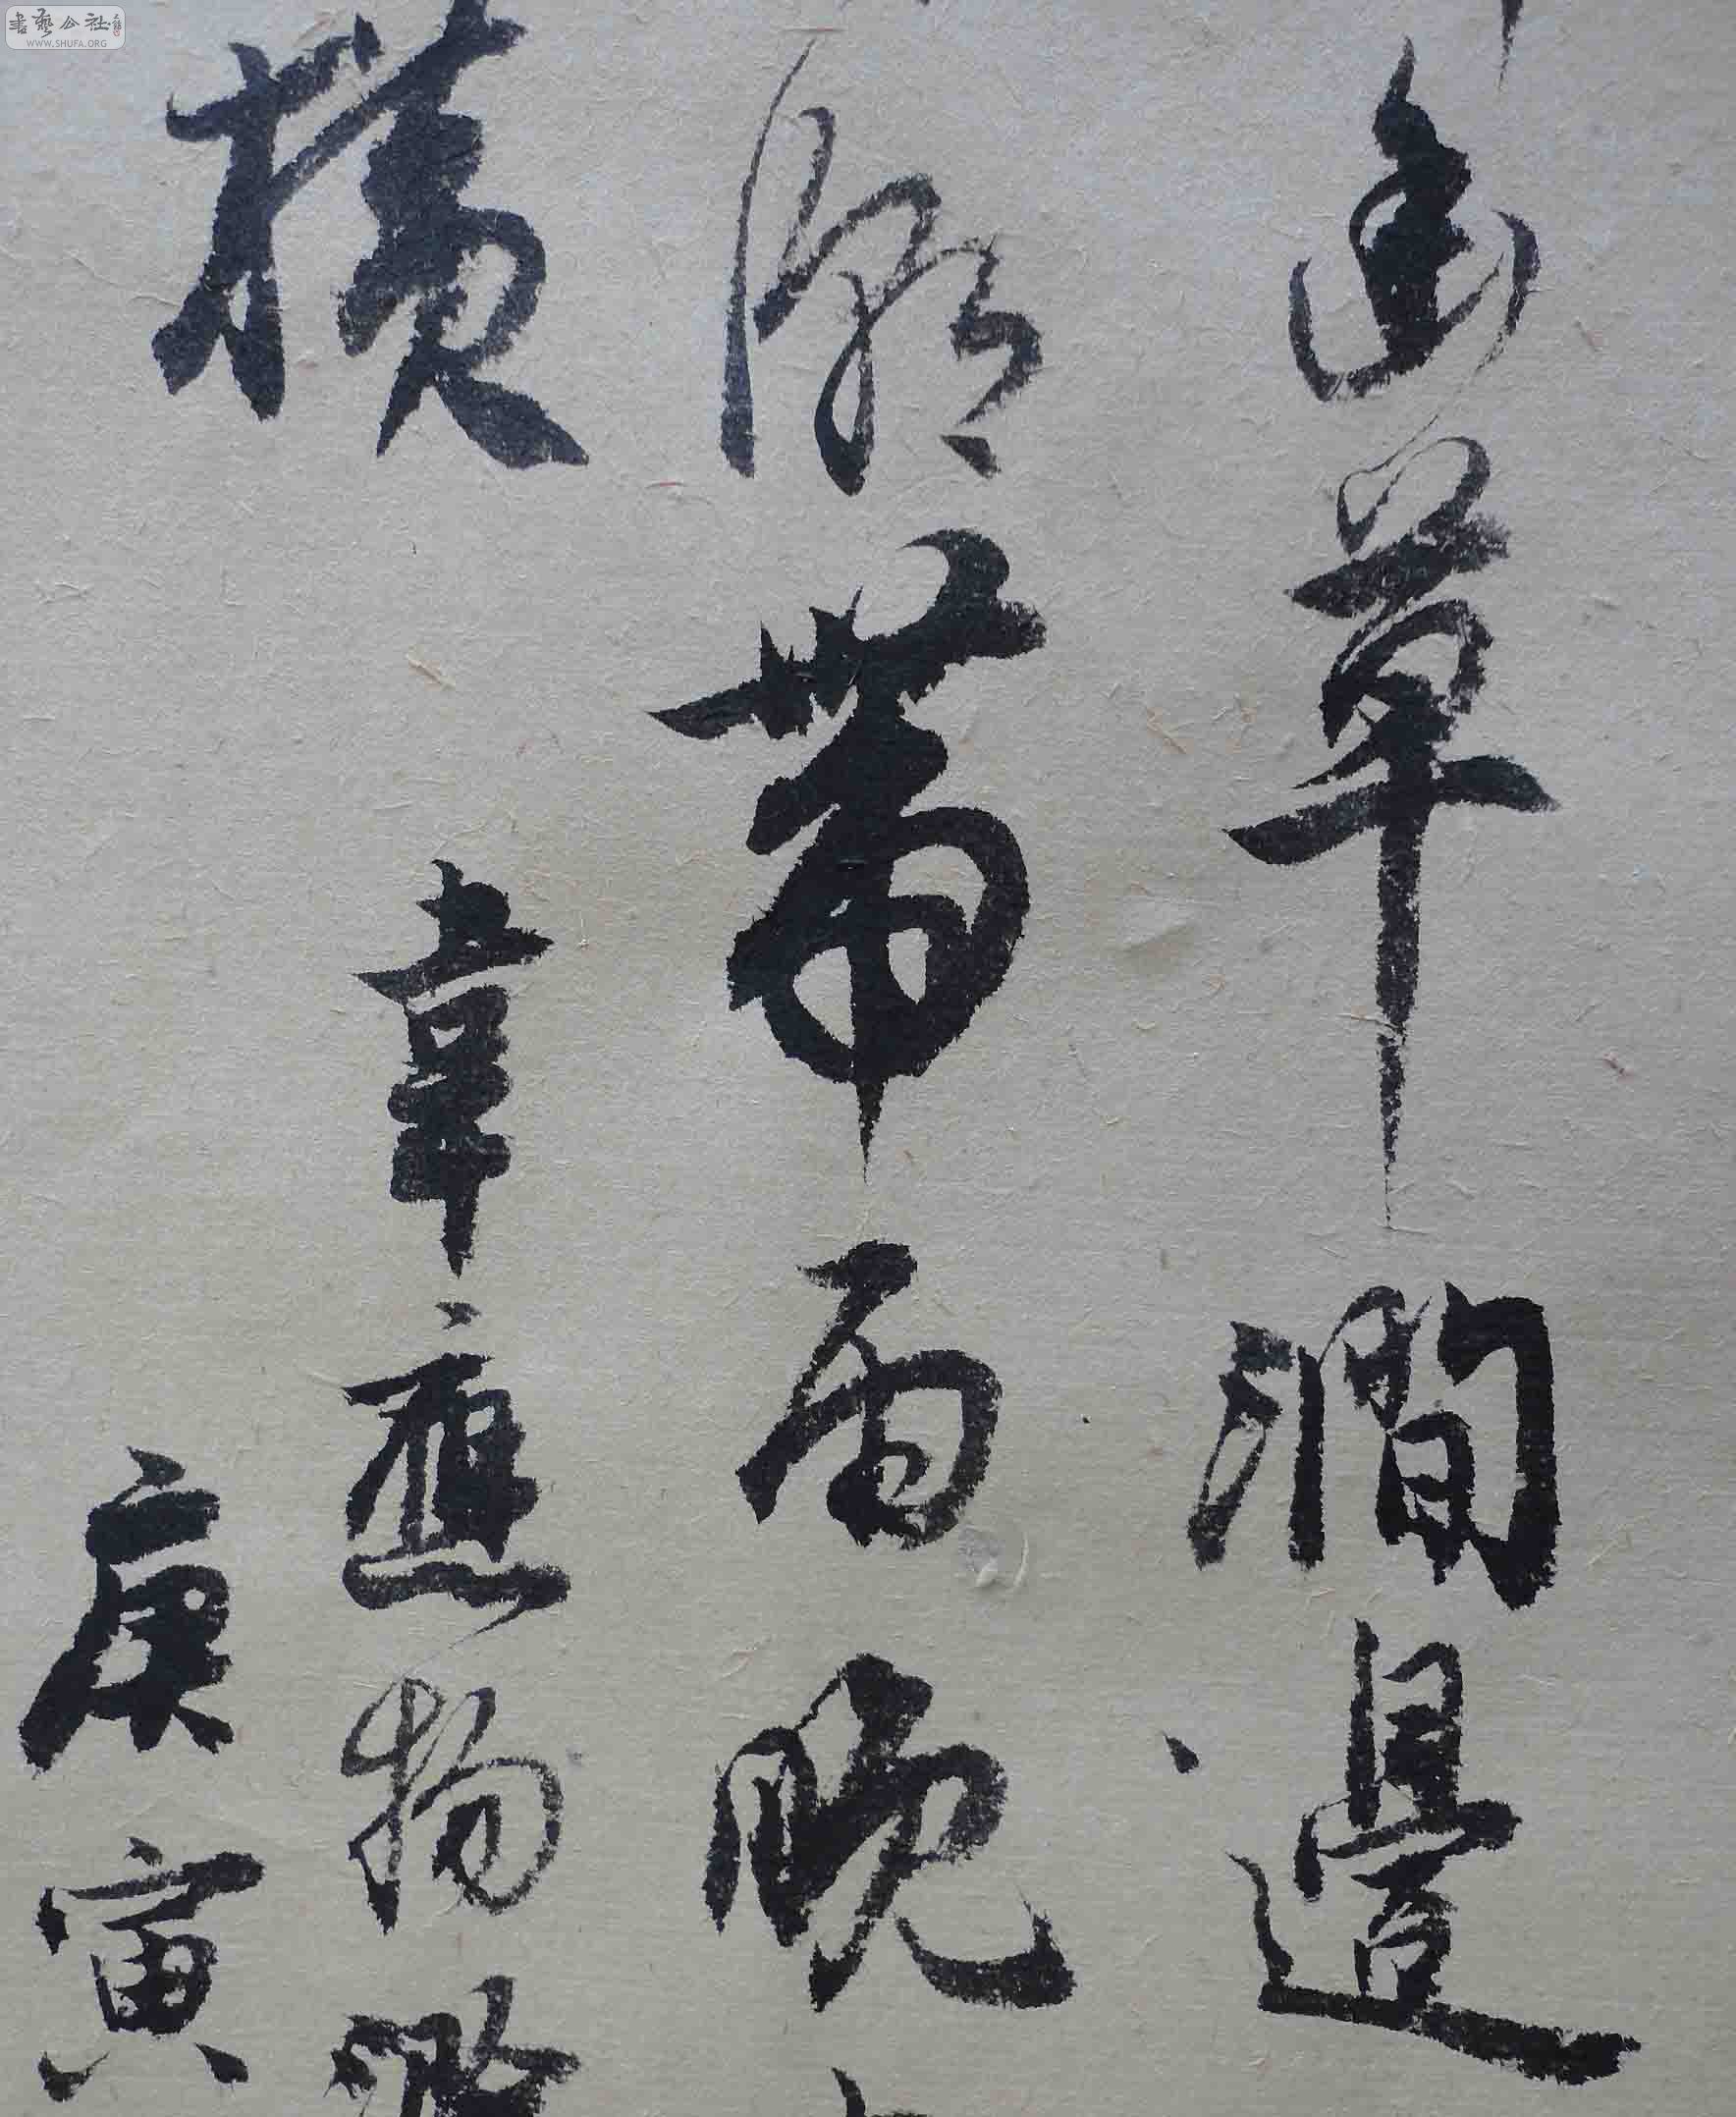 幽草澗邊
潮帶雨晚
橫
韋應物
庚寅
書藝公社
WWW.SHUFA.ORG